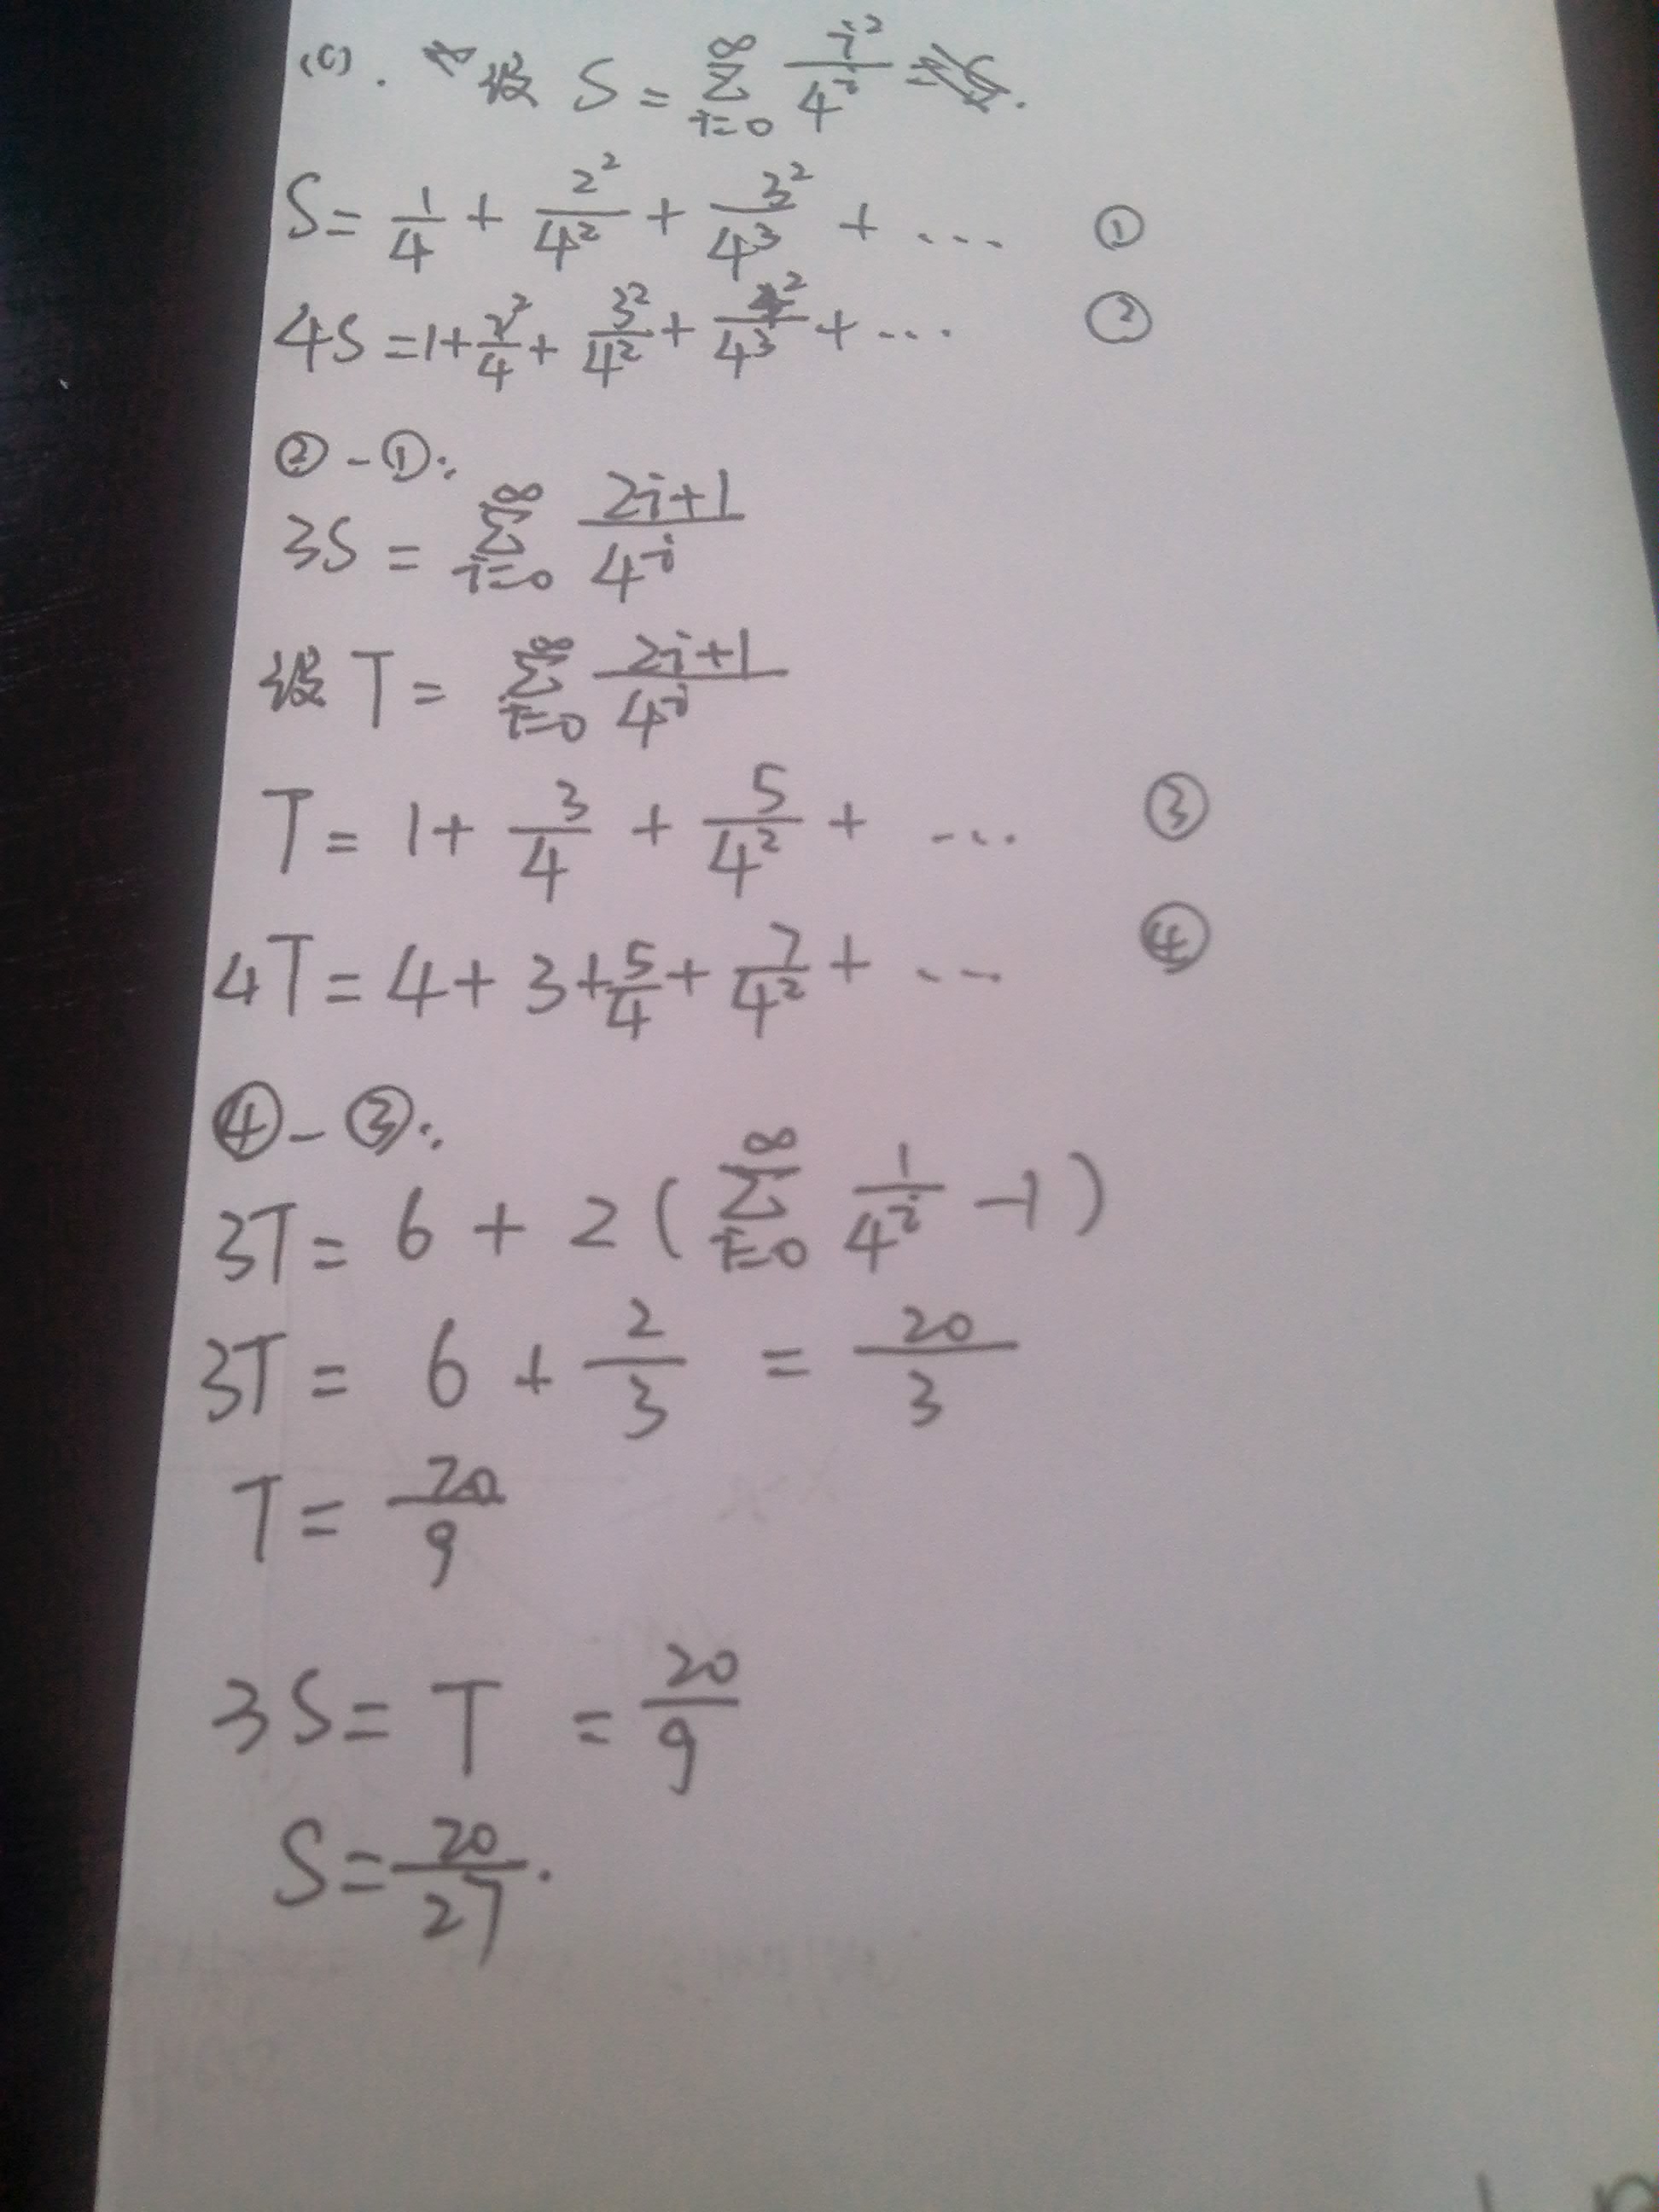 (c). 设 S = ∑_{i=0}^{∞} i²/4^i .
S = 1/4 + 2²/4² + 3²/4³ + ... ①
4S = 1 + 2²/4 + 3²/4² + 4²/4³ + ... ②
② - ①:
3S = ∑_{i=0}^{∞} (2i+1)/4^i
设 T = ∑_{i=0}^{∞} (2i+1)/4^i
T = 1 + 3/4 + 5/4² + ... ③
4T = 4 + 3 + 5/4 + 7/4² + ... ④
④ - ③:
3T = 6 + 2(∑_{i=0}^{∞} 1/4^i - 1)
3T = 6 + 2/3 = 20/3
T = 20/9
3S = T = 20/9
S = 20/27 .